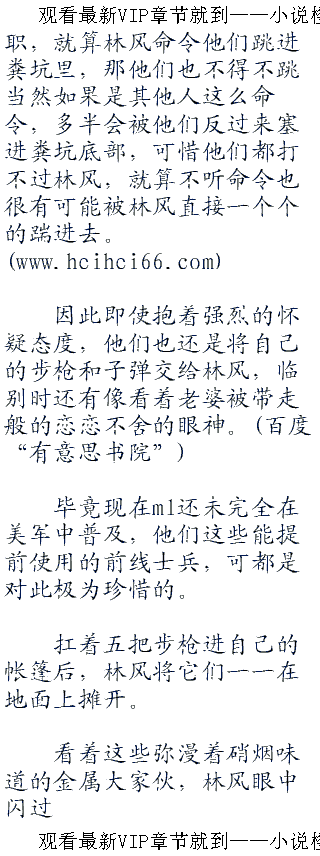 观看最新VIP章节就到——小说检
职，就算林风命令他们跳进
粪坑里，那他们也不得不跳
当然如果是其他人这么命
令，多半会被他们反过来塞
进粪坑底部，可惜他们都打
不过林风，就算不听命令也
很有可能被林风直接一个个
的踹进去。
(www.hcihci66.com)
因此即使抱着强烈的怀
疑态度，他们也还是将自己
的步枪和子弹交给林风，临
别时还有像看着老婆被带走
般的恋恋不舍的眼神。(百度
“有意思书院”)
毕竟现在m1还未完全在
美军中普及，他们这些能提
前使用的前线士兵，可都是
对此极为珍惜的。
扛着五把步枪进自己的
帐篷后，林风将它们一一在
地面上摊开。
看着这些弥漫着硝烟味
道的金属大家伙，林风眼中
闪过
观看最新VIP章节就到——小说检